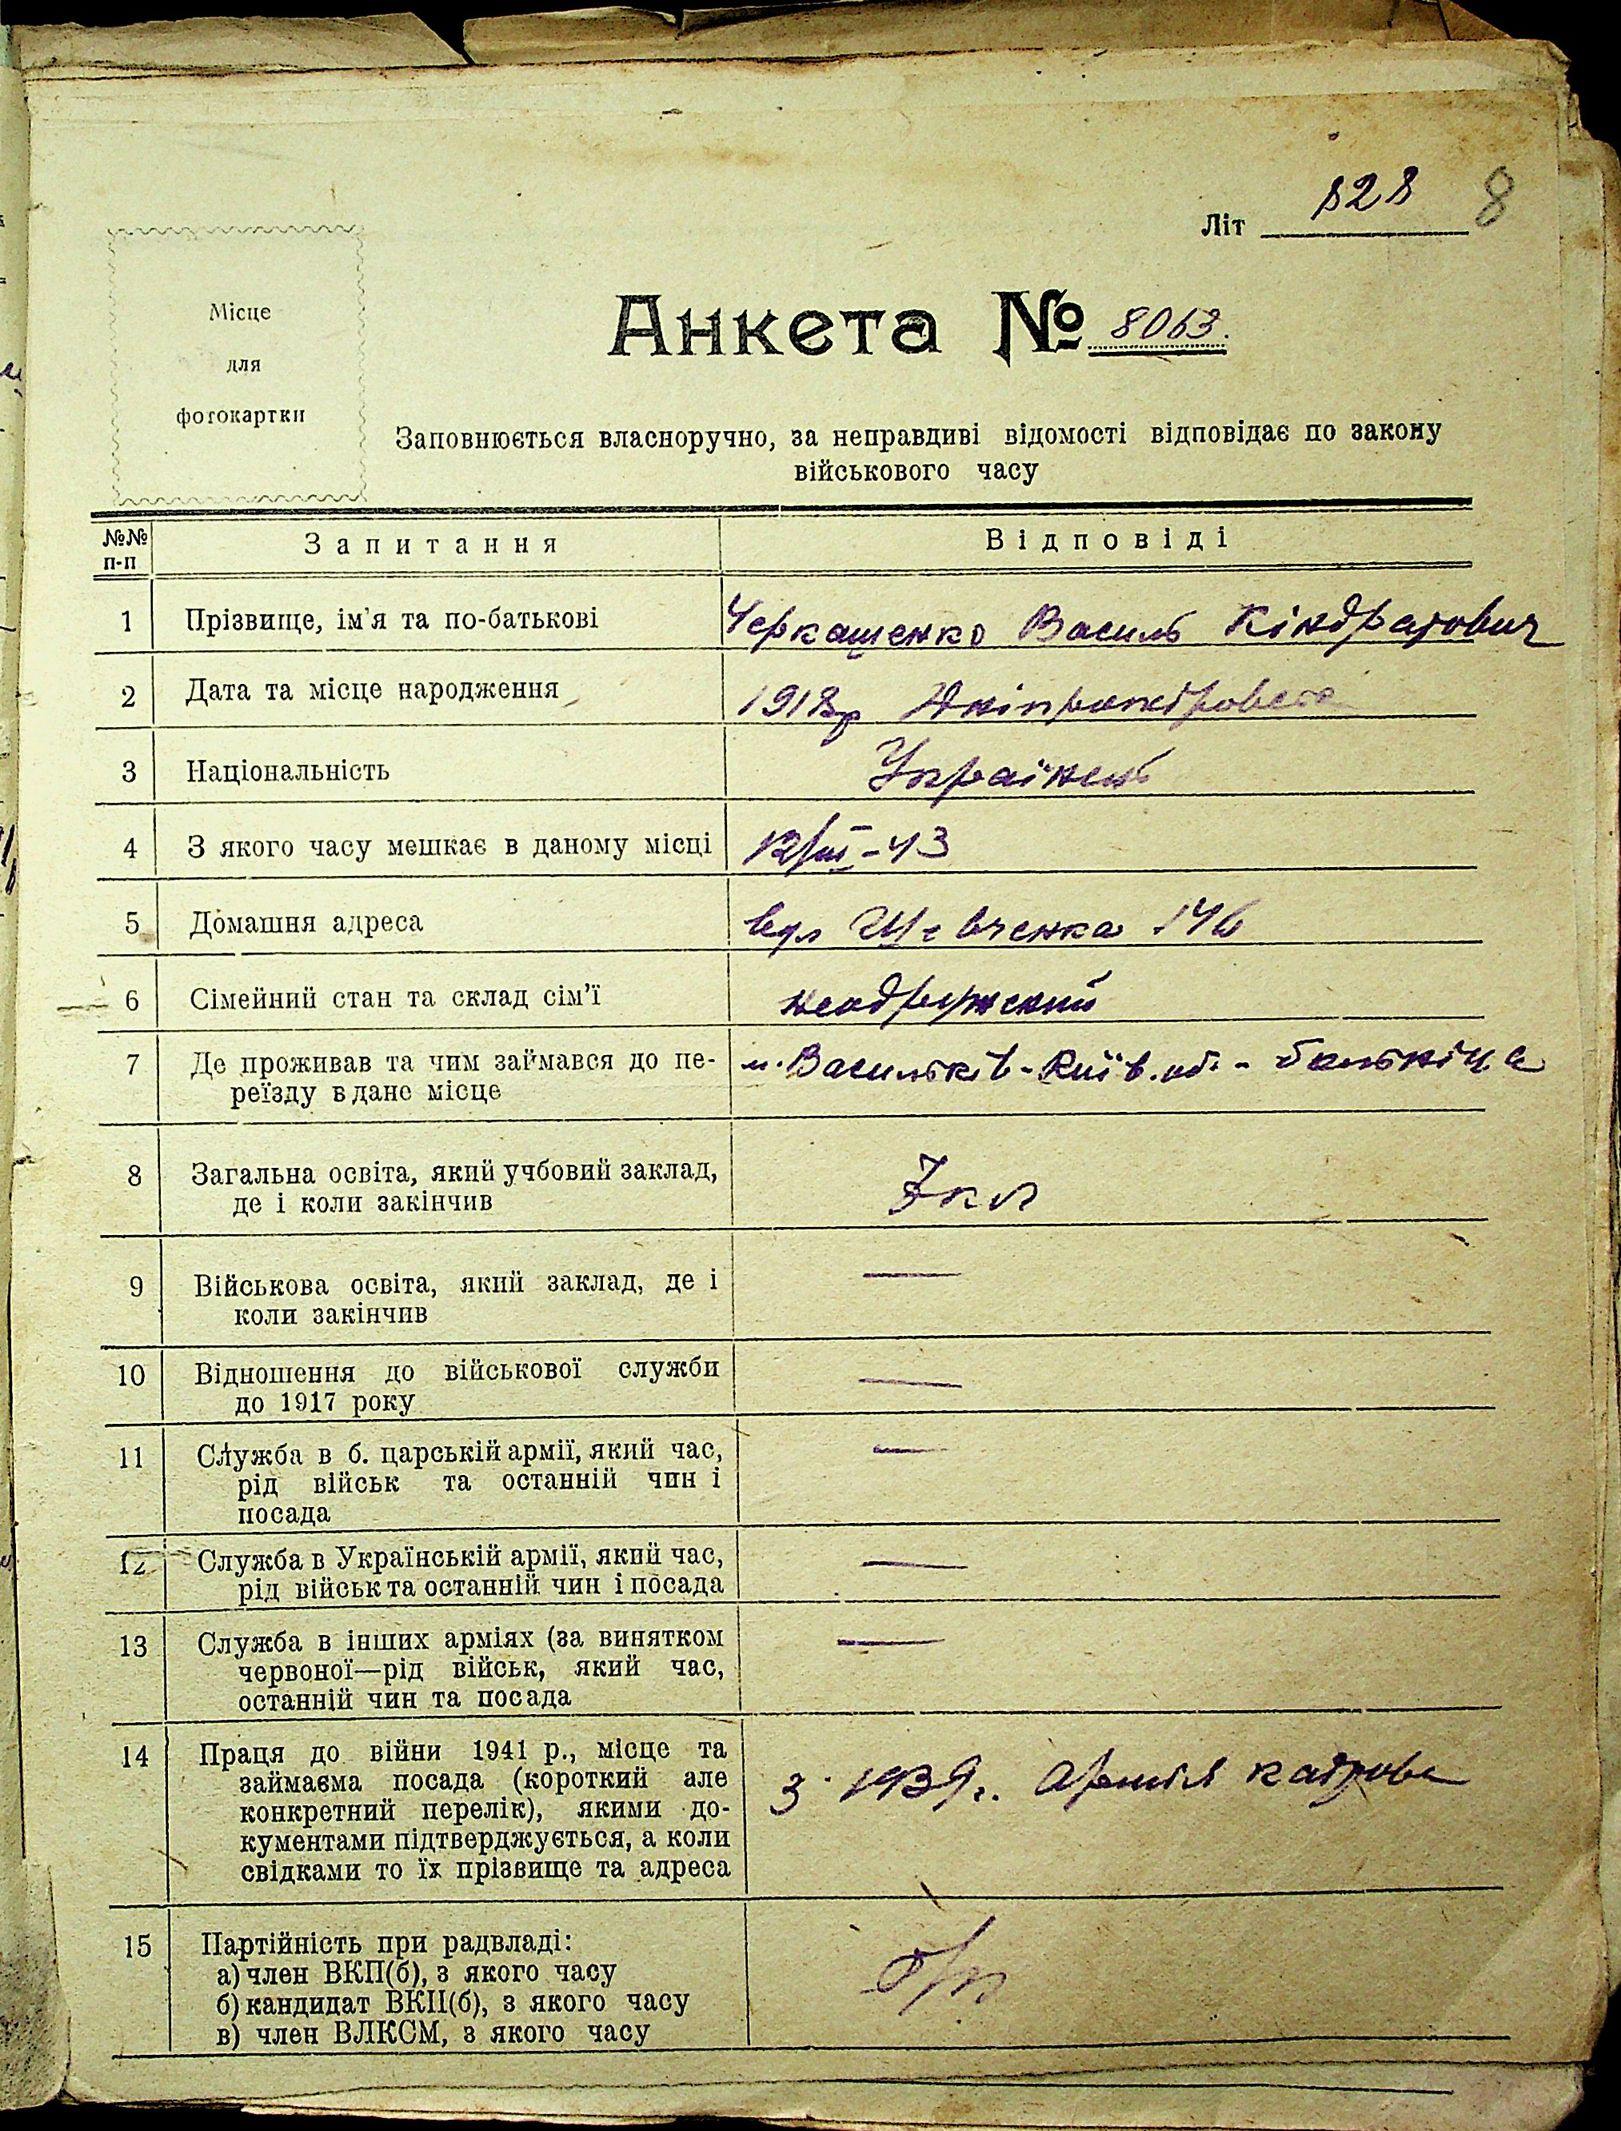 828 8
Літ
Місце
для
фотокартки
Анкета № 8063.
Заповнюється власноручно, за неправдиві відомості відповідає по закону
військового часу
№№ п-п Запитання Відповіді
1 Прізвище, ім'я та по-батькові Черкашенко Василь Кіндратович
2 Дата та місце народження 1918р Дніпропетровськ
3 Національність Українець
4 З якого часу мешкає в даному місці 12/III-43
5 Домашня адреса вул Шевченка 146
6 Сімейний стан та склад сім'ї неодружений
7 Де проживав та чим займався до пе-
реїзду в дане місце м. Васильків - Київ. об. -
8 Загальна освіта, який учбовий заклад,
де і коли закінчив 7 кл
9 Військова освіта, який заклад, де і
коли закінчив —
10 Відношення до військової служби
до 1917 року —
11 Служба в б. царській армії, який час,
рід військ та останній чин і
посада —
12 Служба в Українській армії, який час,
рід військ та останній чин і посада —
13 Служба в інших арміях (за винятком
червоної—рід військ, який час,
останній чин та посада —
14 Праця до війни 1941 р., місце та
займаєма посада (короткий але
конкретний перелік), якими до-
кументами підтверджується, а коли
свідками то їх прізвище та адреса з 1939г. Армія кадрова
15 Партійність при радвладі: б/п
а) член ВКП(б), з якого часу
б) кандидат ВКП(б), з якого часу
в) член ВЛКСМ, з якого часу